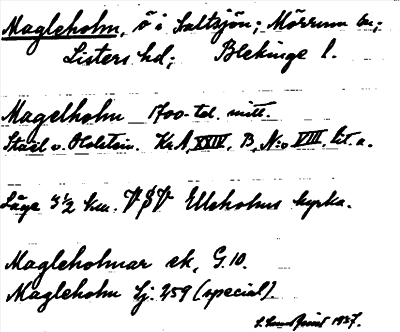 Magleholm, ö i Saltsjön; Mörrum sn;
Listers hd; Blekinge l.
Magelholm 1700-tal. mitt.
Stael v. Holstein. Kr.A. XXIV, B, N:o VIII, lit. a.
Läge 3 1/2 km. VSV Elleholms kyrka.
Magleholmar ek, G.10.
Magleholm Sj. 259 (special).
1927.